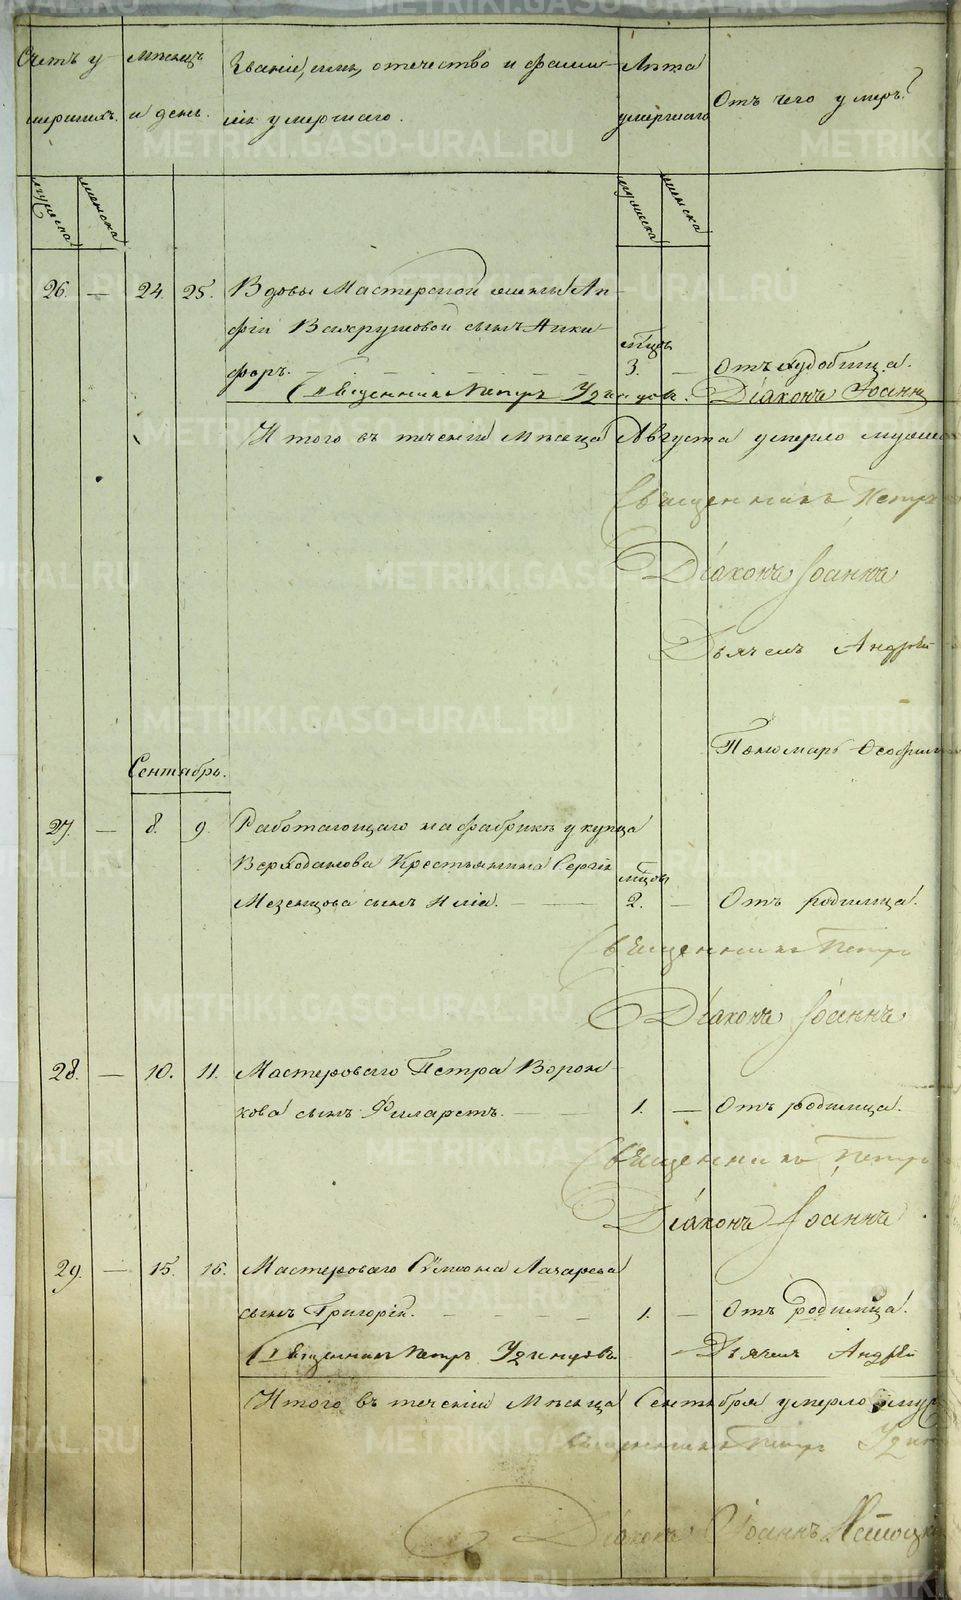 Счетъ у-
мершихъ.
Мѣсяцъ
и день.
Званіе, имя, отечество и фами-
лія умершаго.
Лѣта
умершаго
Отъ чего умеръ?
мужеска
женска
мужеска
женска
26. — 24. 25. Вдовы Мастерской жены Ан-
фіи Вахрушовой сынъ Ники-
форъ. мѣсяц. 3. — Отъ худобища.
Священникъ Петръ Удинцовъ. Діаконъ Іоаннъ
Итого въ теченіи Мѣсяца Августа умерло мужеск
Священникъ Петръ
Діаконъ Іоаннъ
Дьячекъ Андрей
Пономарь Ѳеофил
Сентябрь.
27. — 8. 9. Работающаго на фабрикѣ у купца
Верходанова Крестьянина Сергія
Мезенцова сынъ Илія. мѣсяц. 2. — Отъ родимца.
Священникъ Петръ
Діаконъ Іоаннъ
28. — 10. 11. Мастероваго Петра Ворон-
кова сынъ Филаретъ. 1. — Отъ родимца.
Священникъ Петръ
Діаконъ Іоаннъ
29. — 15. 16. Мастероваго Сѵмеона Лазарева
сынъ Григорій. 1. — Отъ родимца.
Священникъ Петръ Удинцовъ Дьячекъ Андрей
Итого въ теченіи Мѣсяца Сентября умерло муж
Священникъ Петръ Удин
Діаконъ Іоаннъ
METRIKI.GASO-URAL.RU